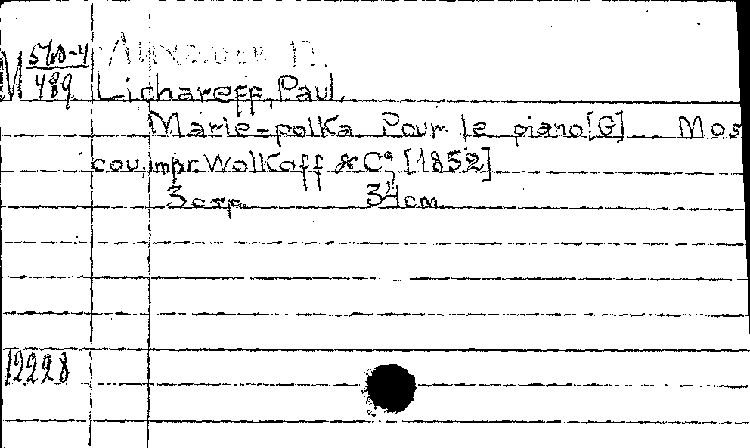 М 560-4/489
Лихарев П.
Lichareff, Paul.
Marie-polka. Pour le piano [G]. _ Mos
cou, impr. Wolkoff & Cº, [1852]
3 стр. 34 cm
12228